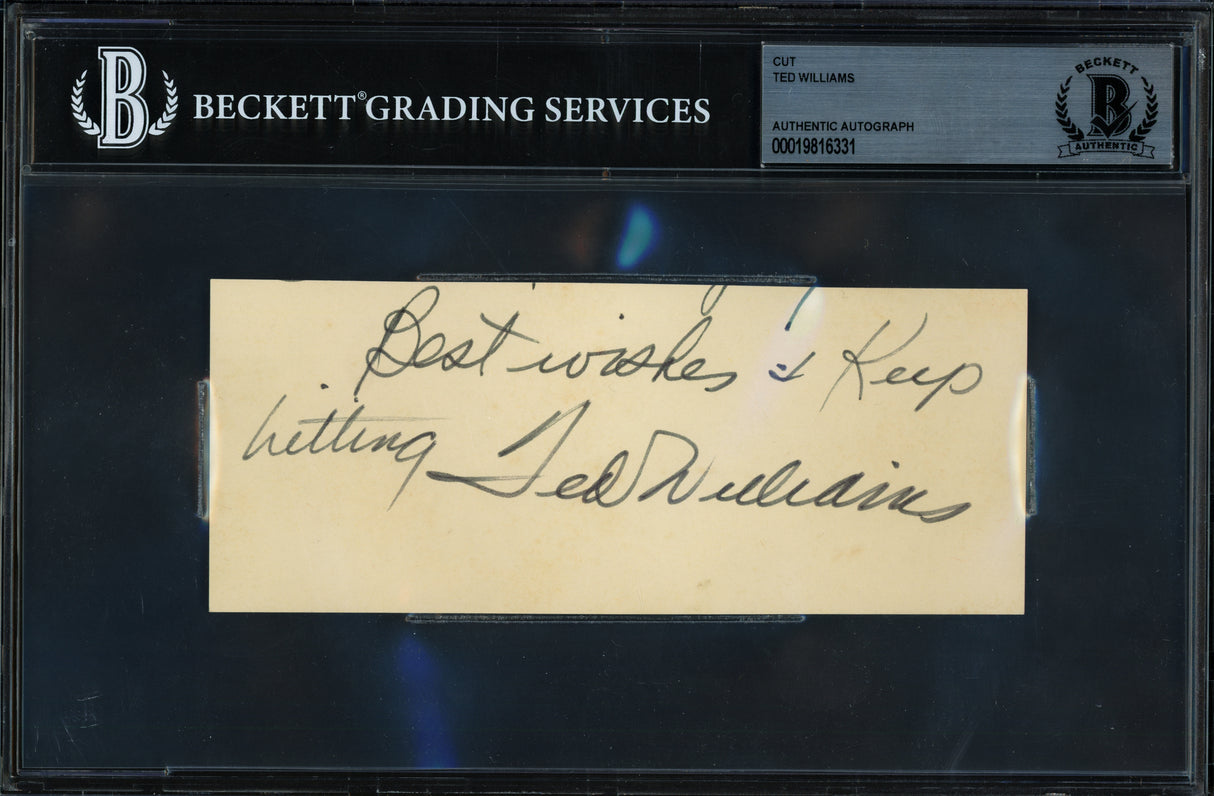 B BECKETT® GRADING SERVICES
CUT
TED WILLIAMS
AUTHENTIC AUTOGRAPH
00019816331
BECKETT
B
AUTHENTIC
Best wishes & Keep
hitting Ted Williams